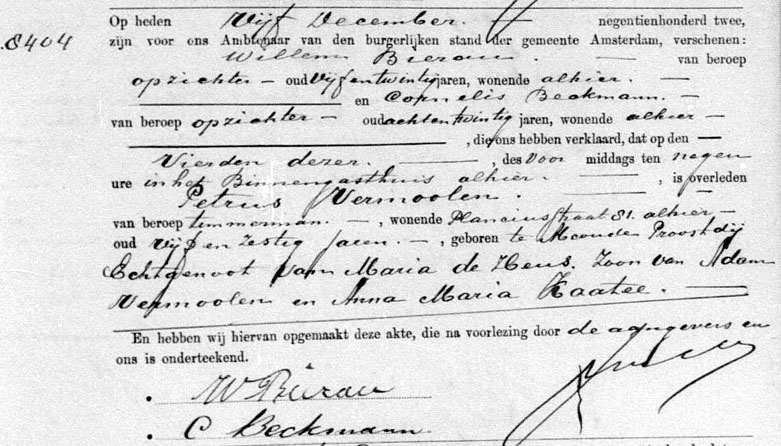 Op heden Vijf December. — negentienhonderd twee,
8404 zijn voor ons Ambtenaar van den burgerlijken stand der gemeente Amsterdam, verschenen:
Willem Bierau. — van beroep
opzichter — oud Vijfentwintig jaren, wonende alhier. —
en Cornelis Beckmann. —
van beroep opzichter — oud achtentwintig jaren, wonende alhier —
, die ons hebben verklaard, dat op den —
Vierden dezer. — , des voor middags ten negen
ure in het Binnengasthuis alhier. — , is overleden
Petrus Vermoolen. —
van beroep timmerman. — , wonende Planciusstraat 81. alhier —
oud Vijf en Zestig jaren. — , geboren te Proostdij
Echtgenoot van Maria de Heus. Zoon van Adam
Vermoolen en Anna Maria Kaatee. —
En hebben wij hiervan opgemaakt deze akte, die na voorlezing door de aangevers en
ons is onderteekend.
W Bierau
C Beckmann.